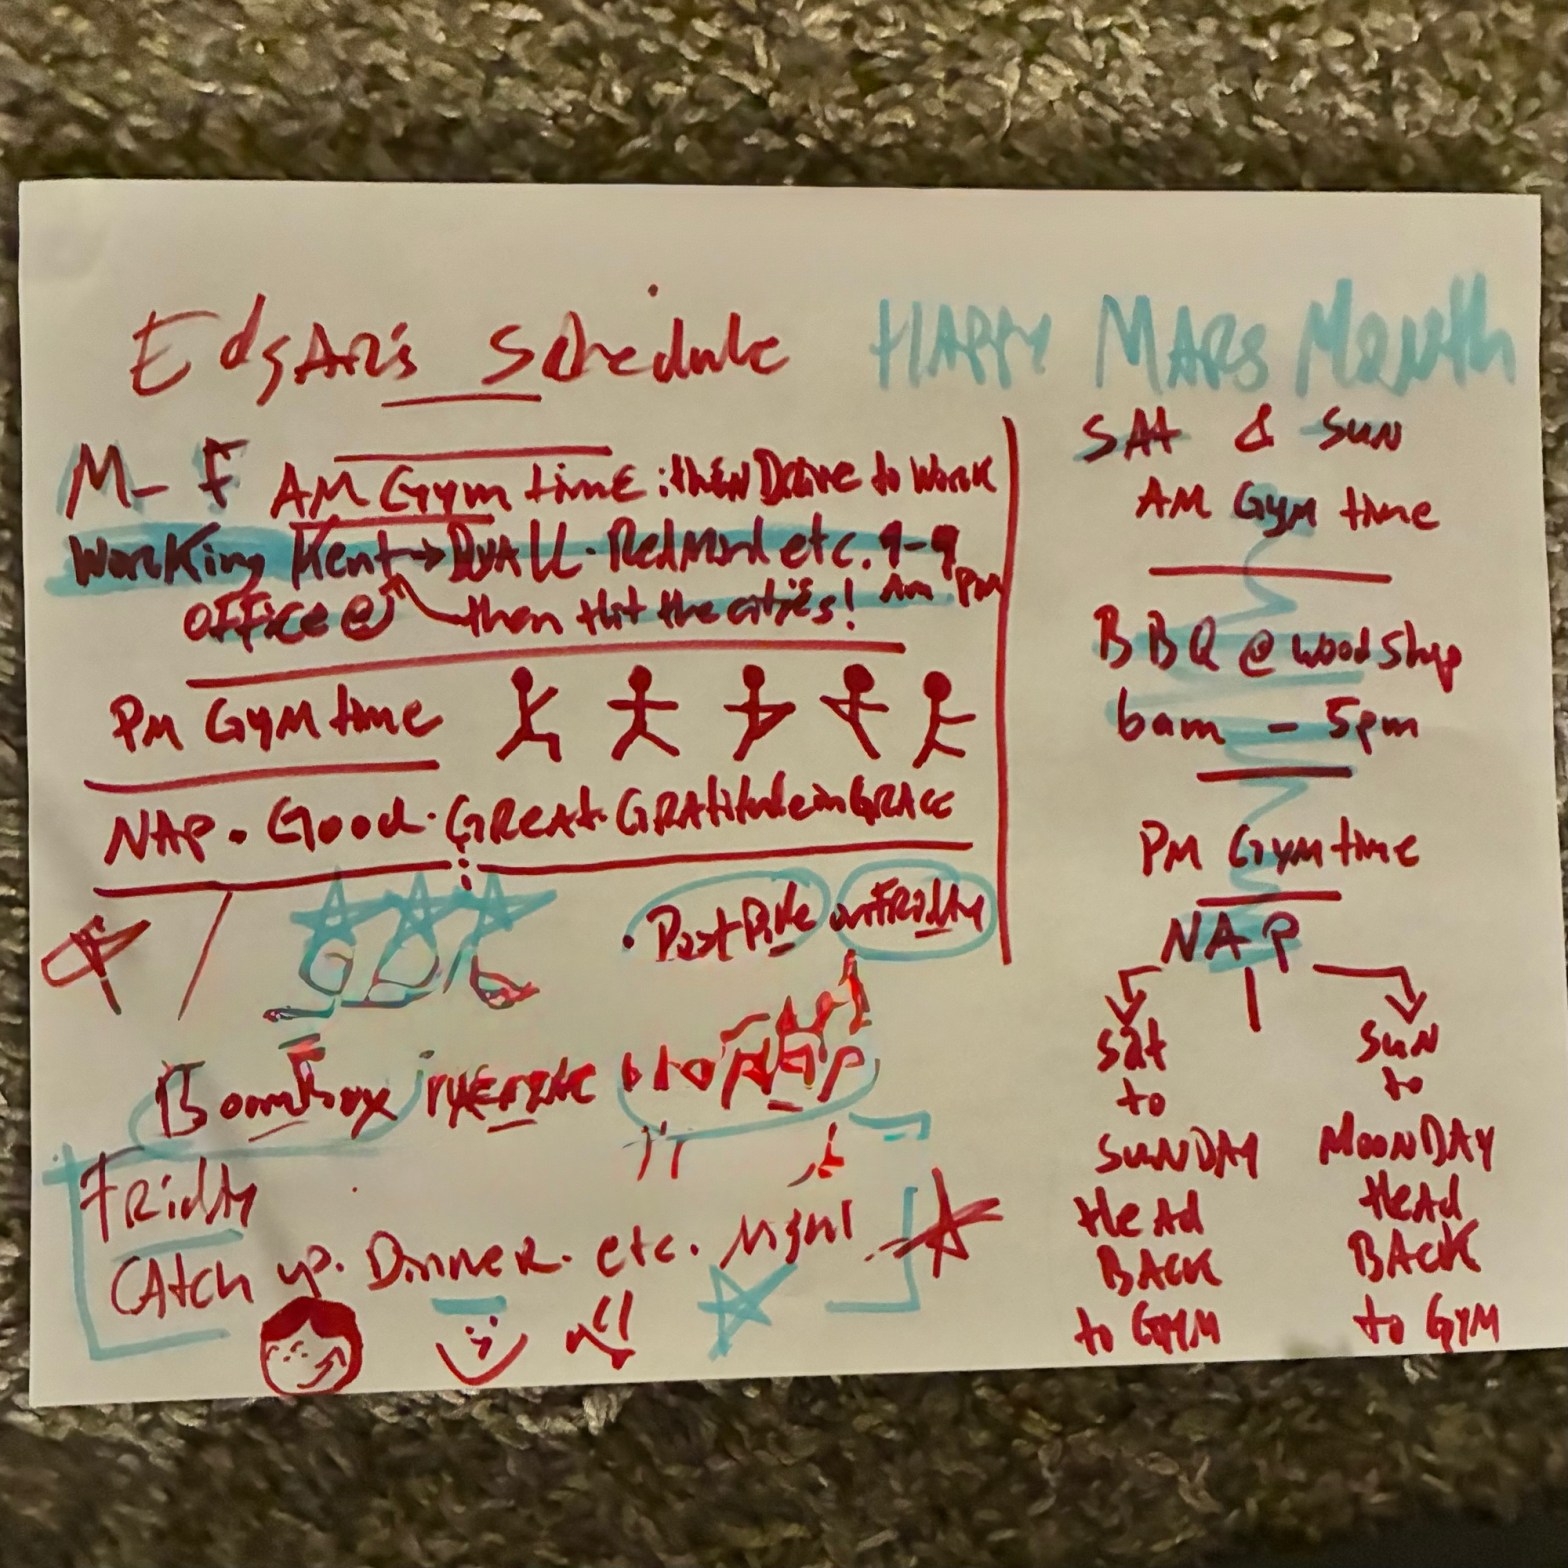 Edgar's Schedule
HAPPY MARS Month
M- F AM Gym time: then Drive to Work
Working Kent → DUALL. Redmond etc. 9-9
office @ then Hit the cities! Am Pm
Pm Gym time
NAP. Good. Great. GRAtitude in GRACE
. Post Pike on Friday
Boombox
Friday
CAtch up. Dinner. etc. Mgml
SAt & Sun
AM Gym time
BBQ @ woodshop
6am - 5pm
PM Gym time
NAP
Sat
to
SUNDAY
Head
BACK
to GYM
Sun
to
MOONDAY
Head
BACK
to GYM